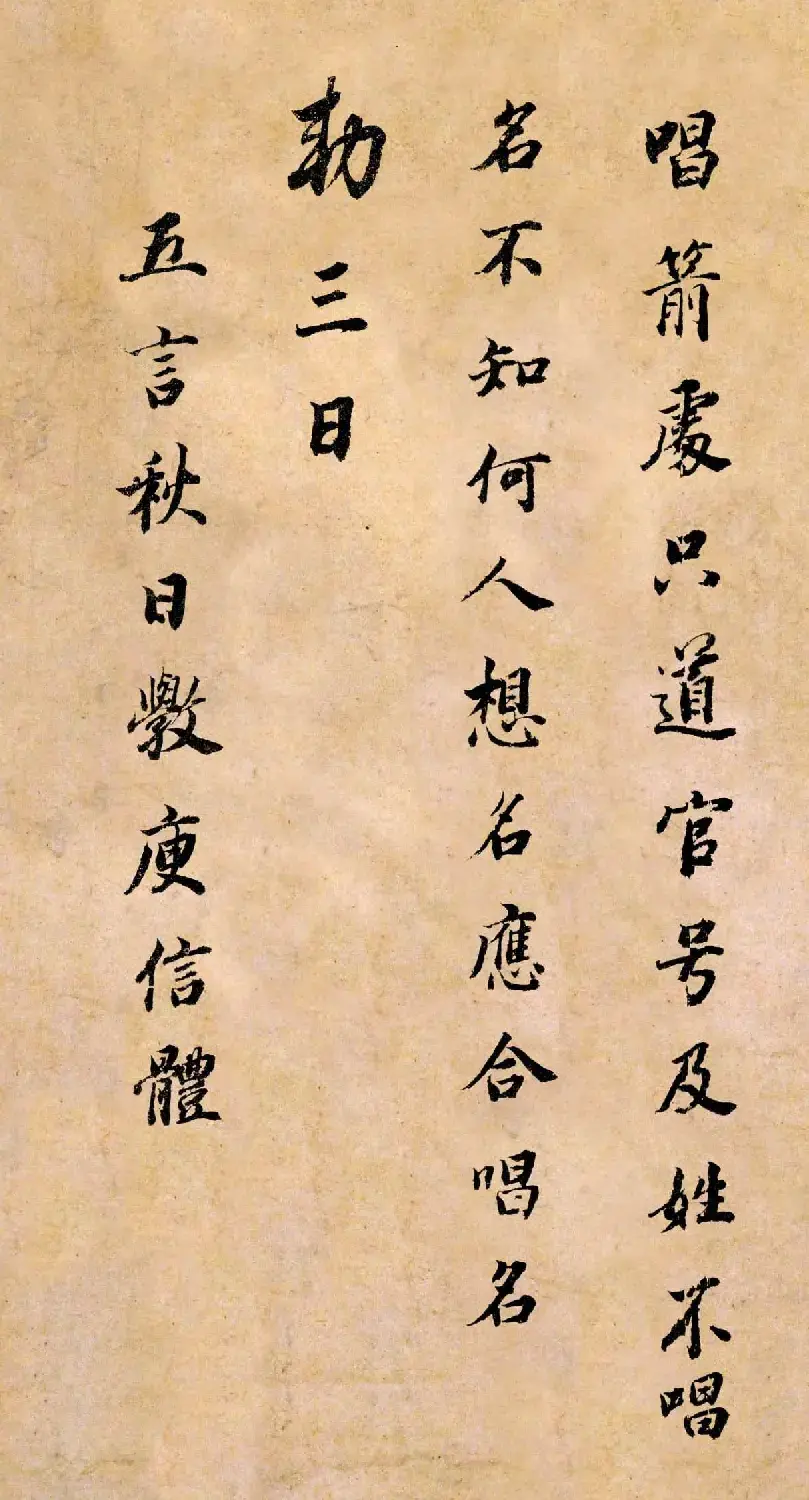 唱箭處只道官号及姓不唱
名不知何人想名應合唱名
勅三日
五言秋日斆庾信體